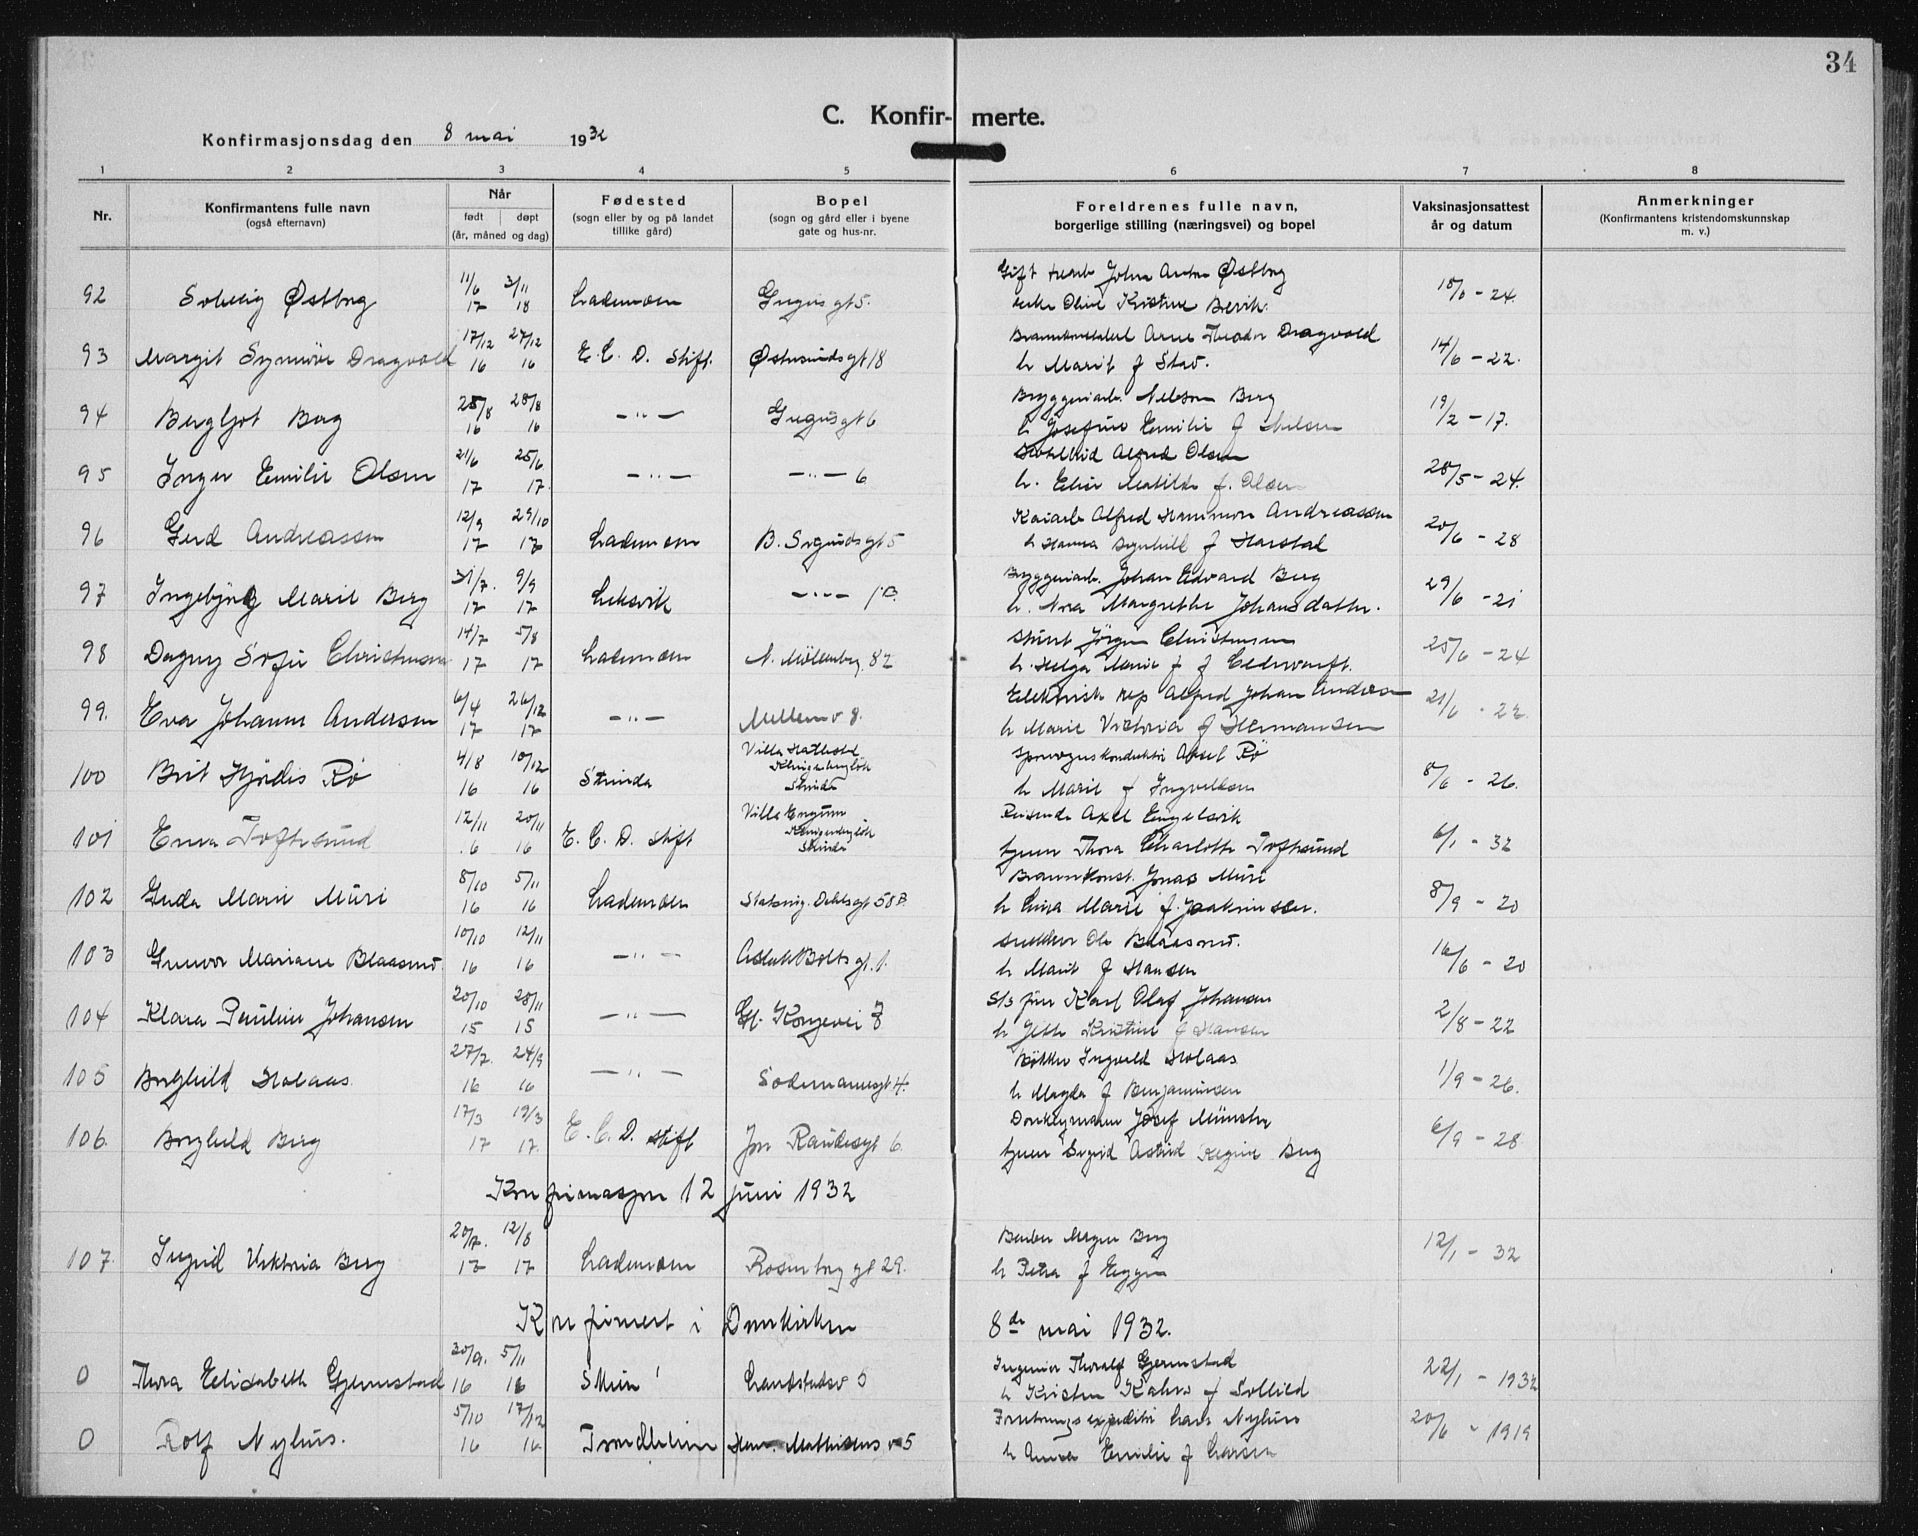 34
C. Konfir- merte.
Konfirmasjonsdag den 8 mai 1932
1 2 3 4 5 6 7 8
Nr. Konfirmantens fulle navn (også efternavn) Når født døpt (år, måned og dag) Fødested (sogn eller by og på landet tillike gård) Bopel (sogn og gård eller i byene gate og hus-nr.) Foreldrenes fulle navn, borgerlige stilling (næringsvei) og bopel Vaksinasjonsattest år og datum Anmerkninger (Konfirmantens kristendomskunnskap m. v.)
Gift John Anton Østborg
92 Solveig Østborg 11/6 17 3/11 18 Lademoen gt 5. Oline Kristine Bervik. 18/6 - 24.
Arne Theodor Dragvold
93 Margit Synnøve Dragvold 17/12 16 27/12 16 E. C. D. Stift. Østersundsgt 18 h Marit f Stav. 14/6 - 22.
Bryggeriarb. Nelson Berg
94 Bergljot Berg 25/8 16 28/8 16 - " - gt 6 h Josefine Emilie f 19/2 - 17.
Alfred Olsen
95 Inger Emilie Olsen 21/6 17 25/6 17. - " - - " - 6 h. Elise Matilde f. Olsen 28/5 - 24.
Kaiarb Alfred Andreassen
96 Gerd Andreassen 12/9 17 29/10 17 Lademoen B. Sigurdsgt 5 h Hanna f Harstad 20/6 - 28
Bryggeriarb. Johan Edvard Berg
97 Ingebjørg Marie Berg 31/7. 17 9/9 17 Leksvik - " - 1B. h. Nora Margrethe Johansdatter. 29/6 - 21
Jørgen Christensen
98 Dagny Sofie Christensen 14/7 17 5/8 17 Lademoen N. Møllenberg 82 h. Helga Marie f 25/6 - 24
Elektrisk rep Alfred Johan Andersen
99. Eva Johanne Andersen 6/4 17 26/12 17 - " - Mellemv 8. h Marie Viktoria f Hermansen 21/6 - 22.
Sporvognskonduktør Aksel Rø
100 Brit Hjørdis Rø 4/8 16 10/12 16 Strinda Villa Strinda h Marie f Ingvaldsen 8/6 - 26.
Reisende Axel Engelsvik
101 Erna Toftesund 12/11 16 20/11 16 E. C. D. stift Villa Strinda Thora Charlotte Toftesund 6/1 - 32
Brannkonst. Jonas Muri
102 Marie Muri 8/10 16 5/11 16 Lademoen gt 58 B. h Lina Marie f. Joakimsen. 8/9 - 20
Snekker Ole Blaasmo.
103 Gunvor Mariane Blaasmo 10/10 16 12/11 16 - " - Aslak Bolts gt. 1. h Marit f Hansen 16/6 - 20
Karl Olaf Johansen
104 Klara Pauline Johansen 20/10 15 28/11 15 - " - Gl. Kongevei h Kristine f Hansen 2/8 - 22
Ingvald Holaas
105 Borghild Holaas. 27/7. 16 24/9 16 - " - Sodemannsgt 4. h Magda f Benjaminsen 1/9 - 26.
Donkeymann Josef Münster
106. Borghild Berg 17/3 17 19/3 17. E. C. D. stift Jon Raudesgt 6. Sigrid Astrid Regine Berg 6/9 - 28.
Konfirmasjon 12 juni 1932
Barber Berg
107. Ingrid Viktoria Berg 20/7. 17 12/8 17 Lademoen Rosenborg gt 29. h Petra f Eggen 12/1 - 32
Konfirmert i Domkirken 8de mai 1932.
Ingeniør Thoralf Gjermstad
0 Thora Elisabeth Gjermstad 30/9. 16 5/11 16 Skien Landstadsv 5 h Kirsten f Solli 22/1 - 1932
Lars Nyhus
0 Rolf Nyhus. 5/10 16 17/12 16 Trondheim Mathisens v 5 h Anna Emilie f Larsen 20/6 - 1919